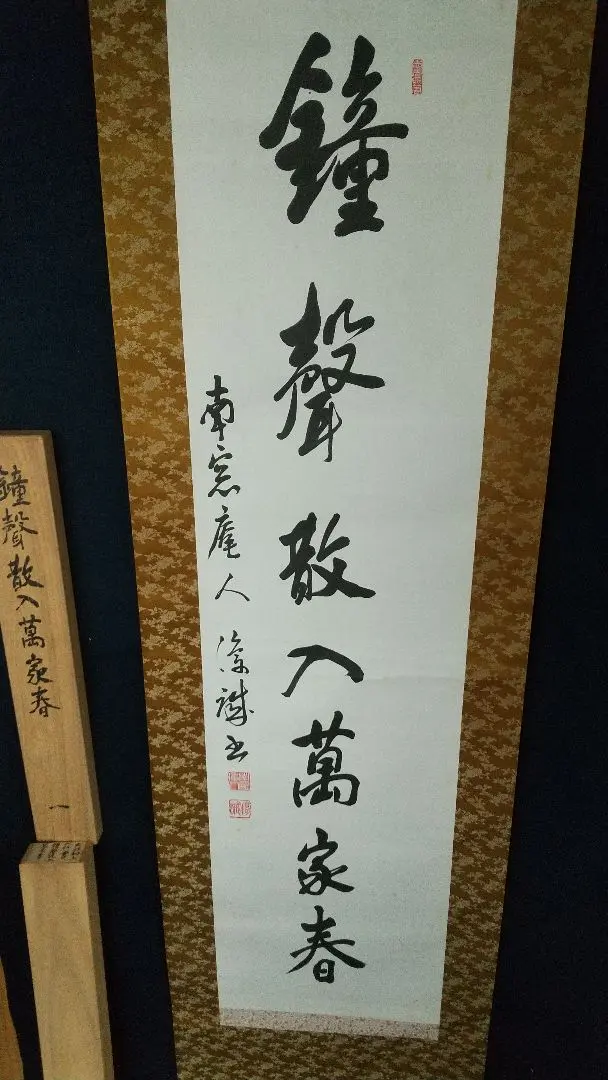 鐘聲散入萬家春
南窓庵人
鐘聲散入萬家春